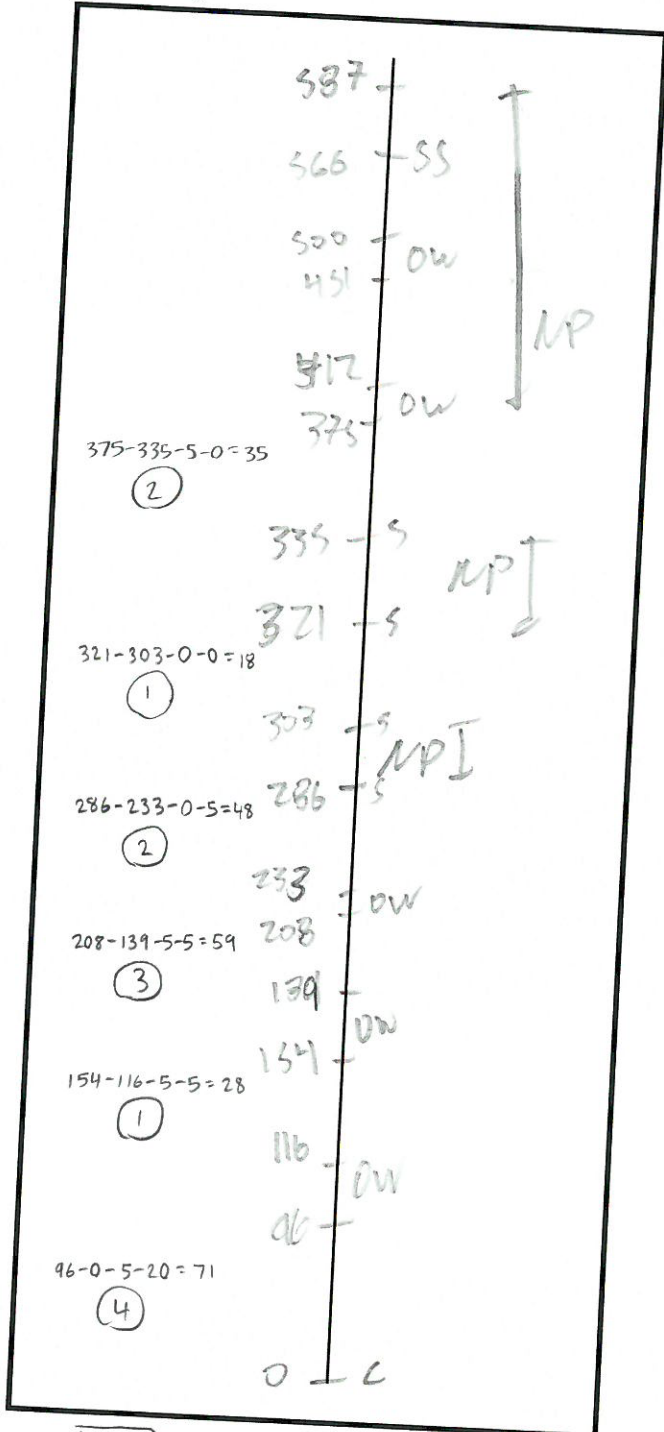 587
566 SS
500
OW
451
NP
412
OW
375
375-335-5-0=35
2
335 S
NP
321 S
321-303-0-0=18
1
303 S
NP
286 S
286-233-0-5=48
2
233
OW
208
208-139-5-5=59
3
139
OW
154
154-116-5-5=28
1
116
OW
96
96-0-5-20=71
4
0 C